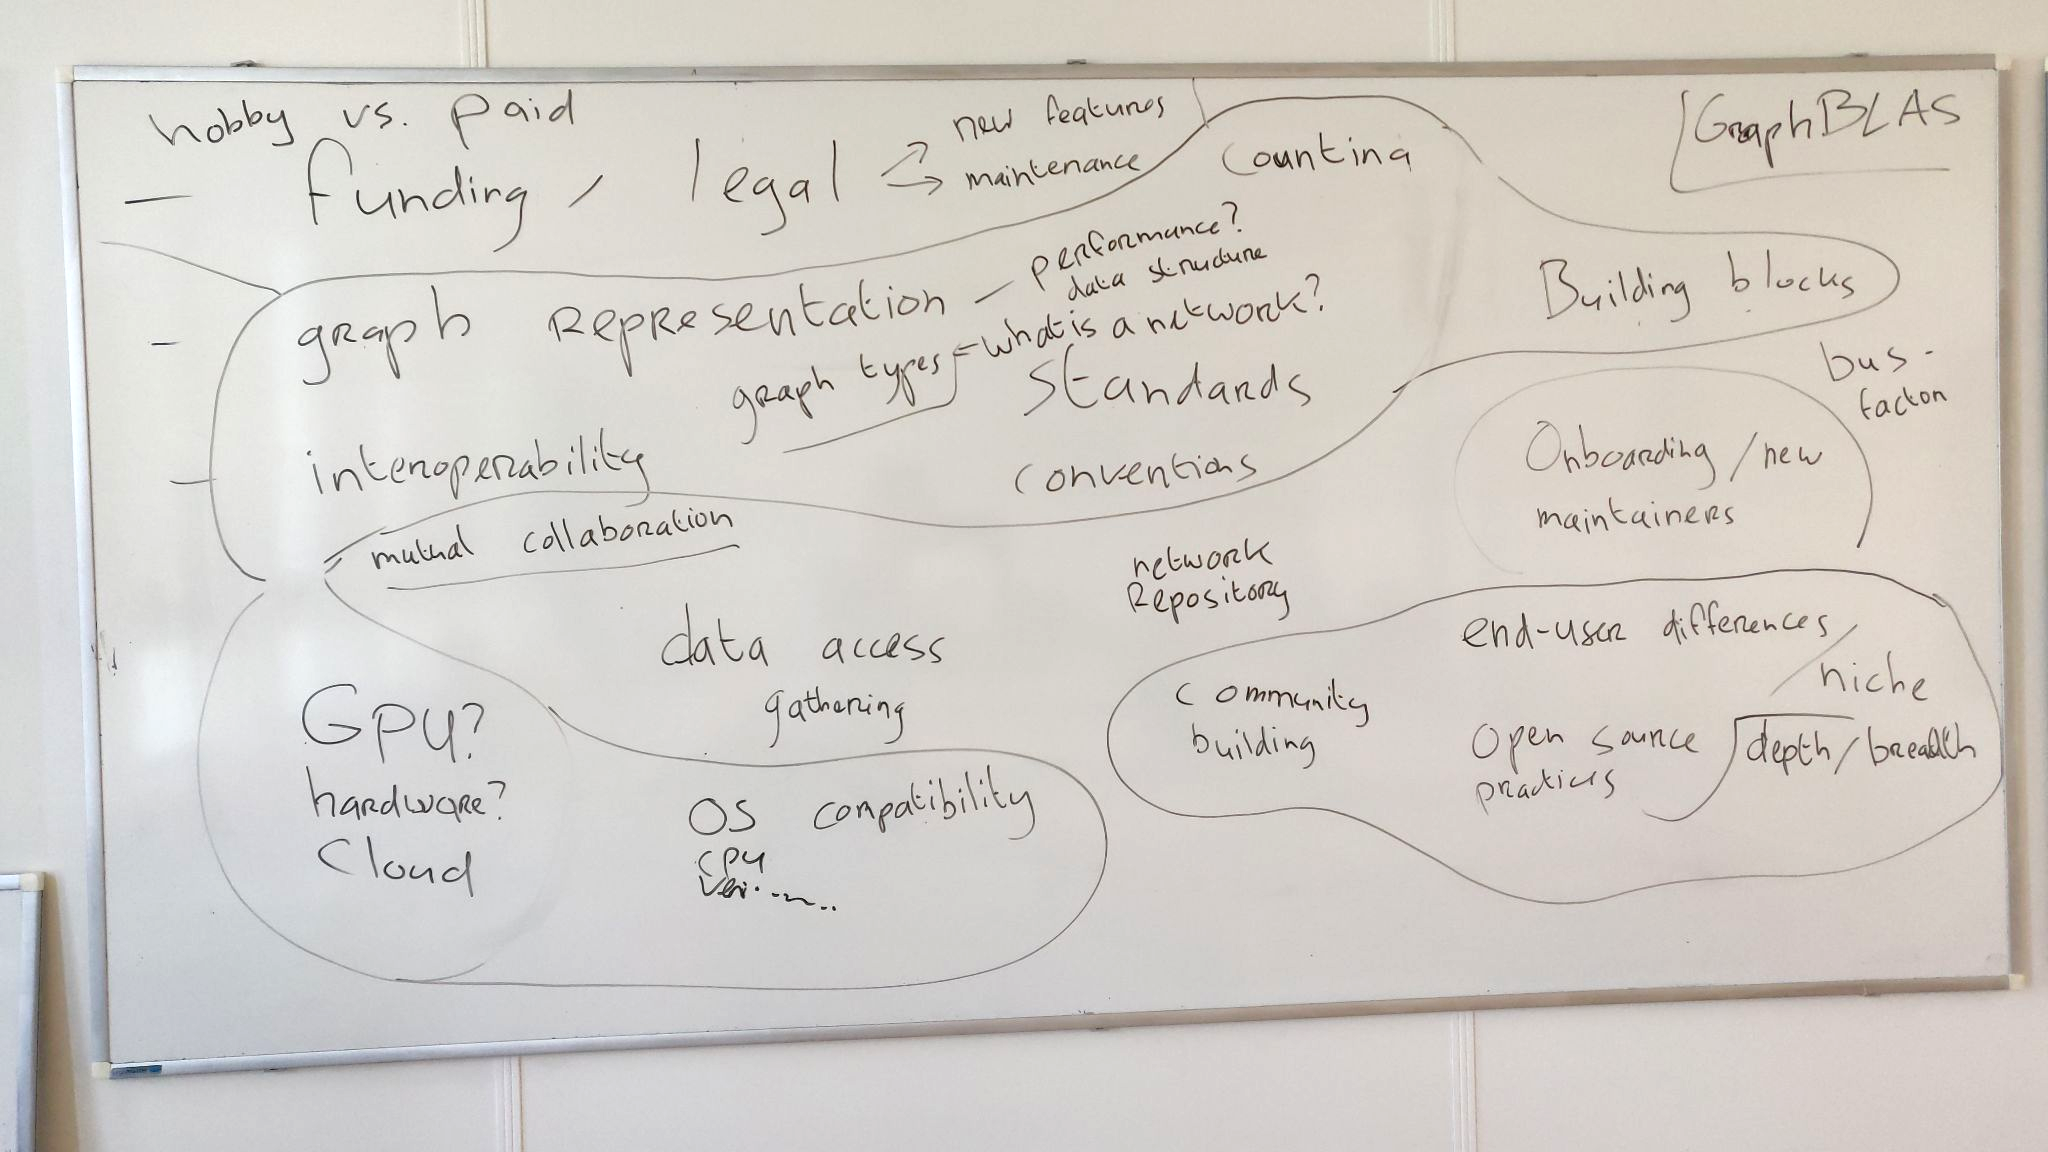 hobby vs. paid
- funding / legal
new features
maintenance
counting
GraphBLAS
- graph representation - performance?
data structure
graph types - what is a network?
Building blocks
standards
bus-
factor
- interoperability
conventions
Onboarding / new
maintainers
mutual collaboration
network
Repository
data access
gathering
end-user differences /
niche
community
building
Open source
practices
depth / breadth
GPU?
hardware?
Cloud
OS compatibility
CPU